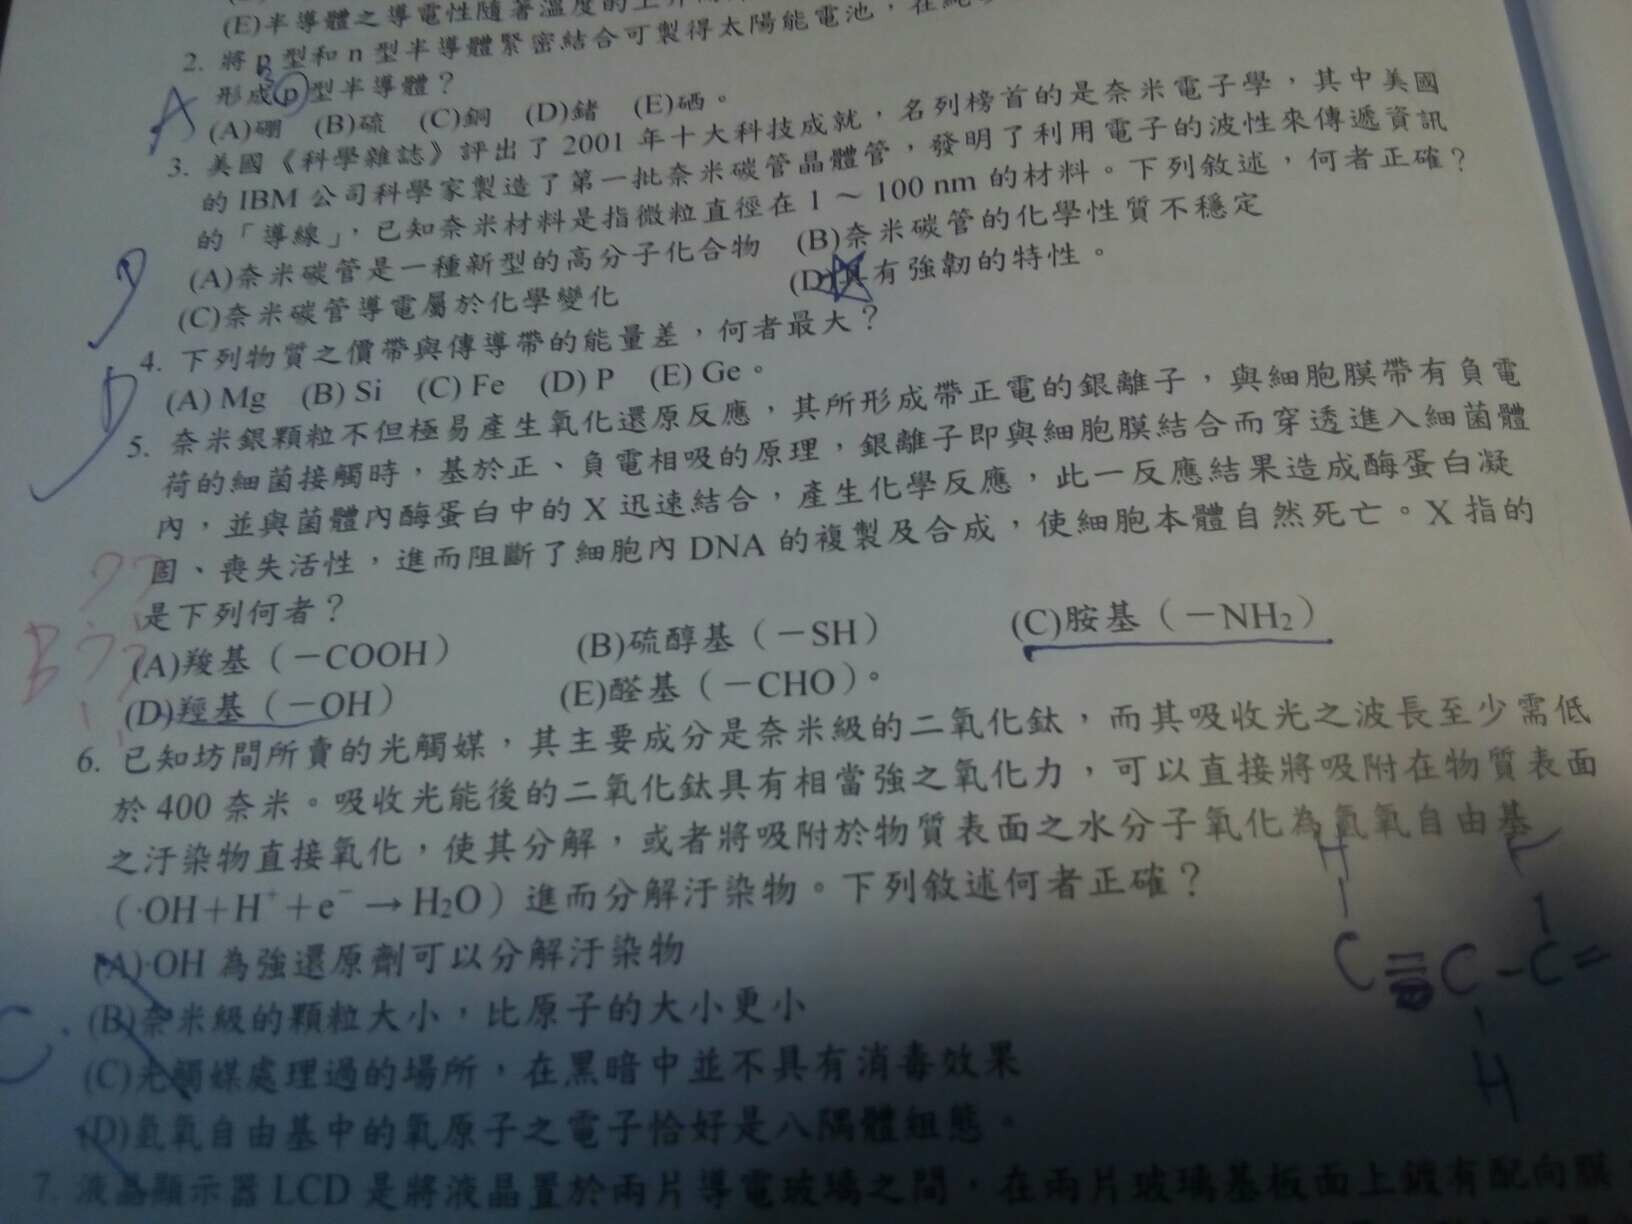 (E)半導體之導電性隨著溫度的上升
2. 將 p 型和 n 型半導體緊密結合可製得太陽能電池，在純
形成 p 型半導體？
A
(A)硼 (B)硫 (C)銅 (D)鍺 (E)硒。
3. 美國《科學雜誌》評出了 2001 年十大科技成就，名列榜首的是奈米電子學，其中美國
的 IBM 公司科學家製造了第一批奈米碳管晶體管，發明了利用電子的波性來傳遞資訊
的「導線」，已知奈米材料是指微粒直徑在 1 ～ 100 nm 的材料。下列敘述，何者正確？
D
(A)奈米碳管是一種新型的高分子化合物 (B)奈米碳管的化學性質不穩定
(C)奈米碳管導電屬於化學變化 (D)具有強韌的特性。
4. 下列物質之價帶與傳導帶的能量差，何者最大？
D
(A) Mg (B) Si (C) Fe (D) P (E) Ge。
5. 奈米銀顆粒不但極易產生氧化還原反應，其所形成帶正電的銀離子，與細胞膜帶有負電
荷的細菌接觸時，基於正、負電相吸的原理，銀離子即與細胞膜結合而穿透進入細菌體
內，並與菌體內酶蛋白中的 X 迅速結合，產生化學反應，此一反應結果造成酶蛋白凝
固、喪失活性，進而阻斷了細胞內 DNA 的複製及合成，使細胞本體自然死亡。X 指的
是下列何者？
??
B
(A)羧基（－COOH） (B)硫醇基（－SH） (C)胺基（－NH2）
(D)羥基（－OH） (E)醛基（－CHO）。
6. 已知坊間所賣的光觸媒，其主要成分是奈米級的二氧化鈦，而其吸收光之波長至少需低
於 400 奈米。吸收光能後的二氧化鈦具有相當強之氧化力，可以直接將吸附在物質表面
之汙染物直接氧化，使其分解，或者將吸附於物質表面之水分子氧化為氫氧自由基
（·OH＋H⁺＋e⁻→H2O）進而分解汙染物。下列敘述何者正確？
(A)·OH 為強還原劑可以分解汙染物
(B)奈米級的顆粒大小，比原子的大小更小
C.
(C)光觸媒處理過的場所，在黑暗中並不具有消毒效果
(D)氫氧自由基中的氧原子之電子恰好是八隅體組態。
H
C≡C-C=
H
7. 液晶顯示器 LCD 是將液晶置於兩片導電玻璃之間，在兩片玻璃基板面上鍍有配向膜